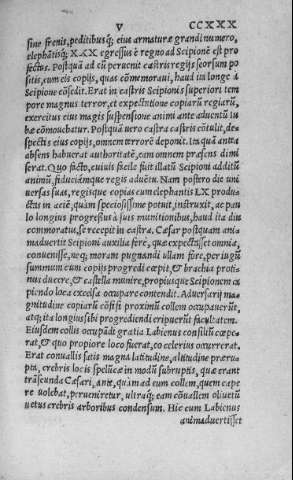 V CCXXX
sine frenis, peditibusq; eius armaturæ grandi numero,
elephātisq; XXX egressus è regno ad Scipionē est pro
fectus. Postquā ad cū peruenit castris regijs seorsum po
sitis, cum eis copijs, quas cōmemoraui, haud ita longe à
Scipione cōsedit. Erat in castris Scipionis superiori tem
pore magnus terror, et expectatione copiarū regiarū,
exercitus eius magis suspensione animi ante aduentū Iu
bæ cōmouebatur. Postquā uero castra castris cōtulit, de=
spectis eius copijs, omnem terrorē deponit. Ita quā antea
absens habuerat authoritatē, eam omnem præsens dimi
serat. Quo facto, cuiuis facile fuit illatū Scipioni additū
animū, fiduciāmque regis aduētu. Nam postero die uni
uersas suas, regisque copias cum elephantis LX produ=
ctas in aciē, quàm speciosissime potuit, instruxit, ac pau
lo longius progressus à suis munitionibus, haud ita diu
commoratus, se recepit in castra. Cæsar postquam ani
maduertit Scipioni auxilia fere, quæ expectasset omnia,
conuenisse, neq; moram pugnandi ullam fore, per iugū
summum cum copijs progredi cœpit, & brachia proti=
nus ducere, & castella munire, propiusque Scipionem ca
piendo loca excelsa occupare contendit. Aduersarij ma=
gnitudine copiarū cōfisi proximū collem occupauerūt,
atq; ita longius sibi progrediendi eripuerūt facultatem.
Eiusdem collis occupādi gratia Labienus consiliū cœpe=
rat, & quo propiore loco fuerat, eo celerius occurrerat.
Erat conuallis satis magna latitudine, altitudine præru=
pta, crebris locis speluncæ in modū subruptis, quæ erant
trāseunda Cæsari, ante, quàm ad eum collem, quem cape
re uolebat, perueniretur, ultraq; eam cōuallem oliuetū
uetus crebris arboribus condensum. Hic cum Labienus
animaduertisset